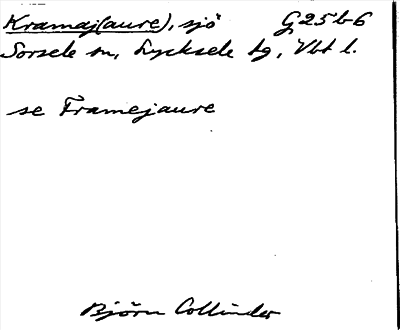 Kramaj(aure), sjö G25b6
Sorsele sn, Lycksele tg, Vbt l.
se Framejaure
Björn Collinder